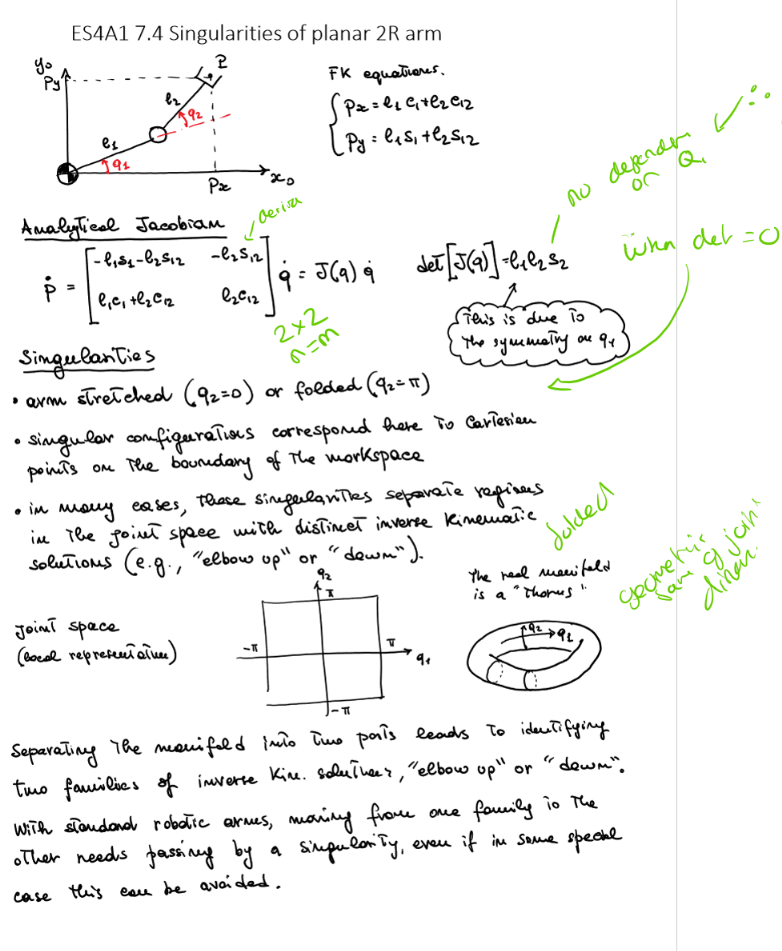 ES4A1 7.4 Singularities of planar 2R arm
y₀
Py
P
ℓ₂
q₂
ℓ₁
q₁
Px
x₀
FK equations.
Px = ℓ₁ c₁ + ℓ₂ c₁₂
Py = ℓ₁ s₁ + ℓ₂ s₁₂
no dependen
on Q₁
∴
Analytical Jacobian
ṗ = [ -ℓ₁s₁-ℓ₂s₁₂ -ℓ₂s₁₂
ℓ₁c₁+ℓ₂c₁₂ ℓ₂c₁₂ ] q̇ = J(q) q̇
2×2
n=m
det[J(q)] = ℓ₁ℓ₂s₂
when det = 0
This is due to
the symmetry on q₁
Singularities
• arm stretched (q₂=0) or folded (q₂=π)
• singular configurations correspond here to Cartesian
points on the boundary of the workspace
• in many cases, these singularities separate regions
in the joint space with distinct inverse kinematic
solutions (e.g., "elbow up" or "down").
folded
Joint space
(local representation)
q₂
π
-π
π
q₁
-π
The real manifold
is a "thorus"
q₂
q₁
geometric
of joint
Separating the manifold into two parts leads to identifying
two families of inverse kin. solutions, "elbow up" or "down".
With standard robotic arms, moving from one family to the
other needs passing by a singularity, even if in some special
case this can be avoided.